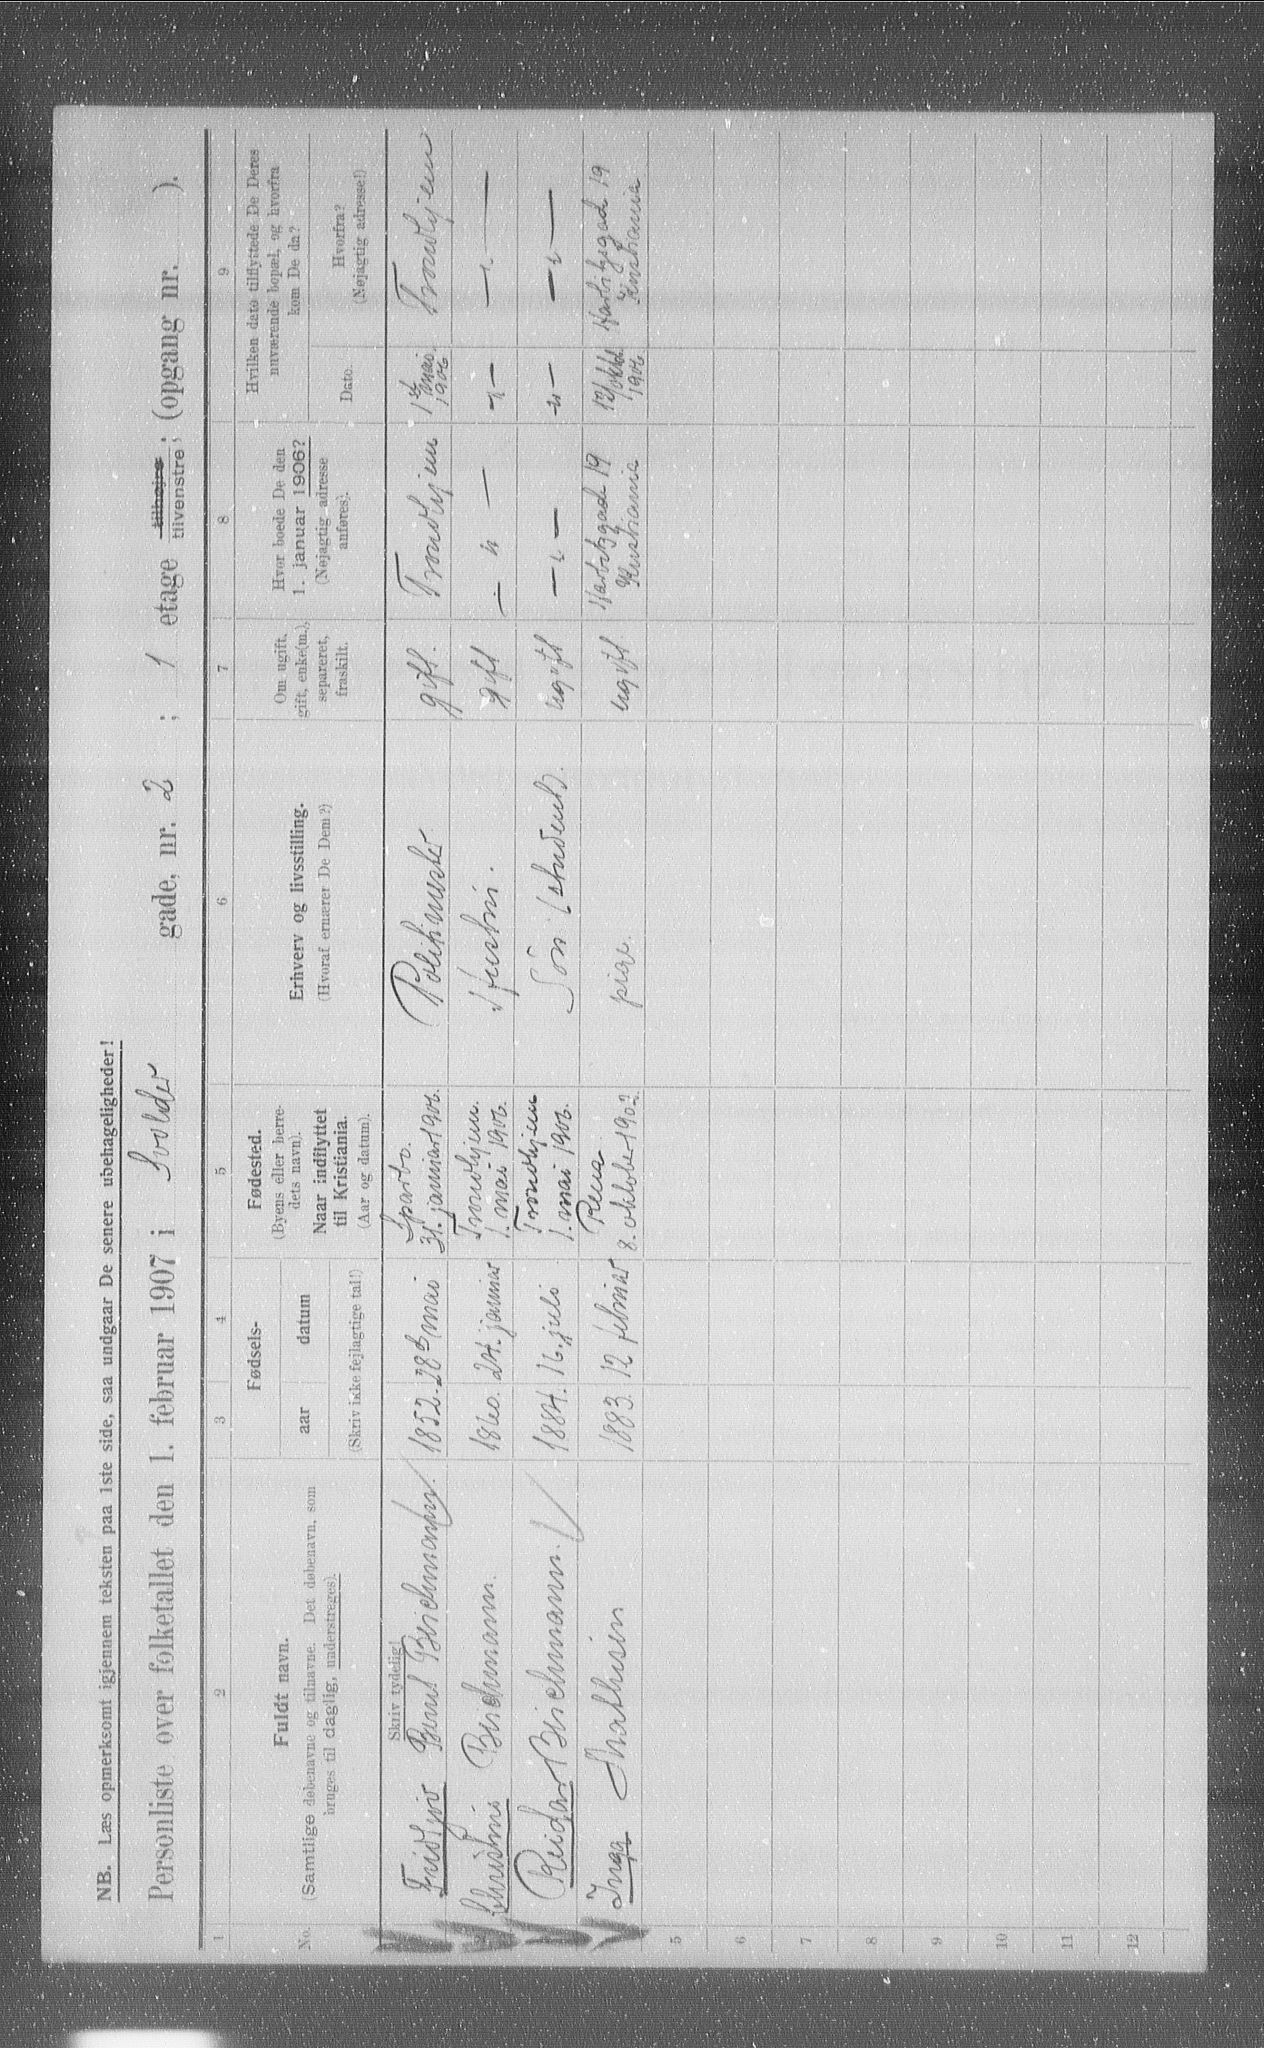 NB. Læs opmerksomt igjennem teksten paa 1ste side, saa undgaar De senere ubehageligheder!
Personliste over folketallet den 1. februar 1907 i Svolder gade, nr. 2 ; 1 etage tilhøjre tilvenstre ; (opgang nr. ).
1 2 3 4 5 6 7 8 9
No.
Fuldt navn.
(Samtlige døbenavne og tilnavne. Det døbenavn, som
bruges til daglig, understreges).
Fødsels-
aar datum
(Skriv ikke fejlagtige tal!)
Fødested.
(Byens eller herre-
dets navn).
Naar indflyttet
til Kristiania.
(Aar og datum).
Erhverv og livsstilling.
(Hvoraf ernærer De Dem?)
Om ugift,
gift, enke(m.),
separeret,
fraskilt.
Hvor boede De den
1. januar 1906?
(Nøjagtig adresse
anføres).
Hvilken dato tilflyttede De Deres
nuværende bopæl, og hvorfra
kom De da?
Dato.
Hvorfra?
(Nøjagtig adresse!)
Skriv tydelig!
Fridtjov Bernt Birchmann 1852. 28de mai Sparbo. 31. januar 1906. Politimester gift. Trondhjem 1ste mai 1906 Trondhjem
Christine Birchmann. 1860. 24. januar Trondhjem. 1. mai 1906. Husfru. gift — " — " — — " —
Reidar Birchmann. 1884. 16. juli Trondhjem 1. mai 1906. Søn, student. ugift — " — " — — " —
Inga Mathisen 1883. 12 februar Rena. 8. oktober 1902. pige. ugift. Harbitzgade 19 Kristiania 12/okt. 1906 Harbitzgade 19 Kristiania
5
6
7
8
9
10
11
12